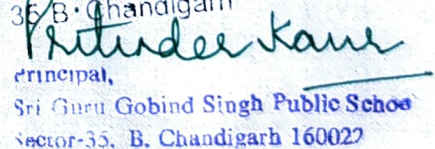 35 B. Chandigarh
Pritinder Kaur
Principal,
Sri Guru Gobind Singh Public Schoo
Sector-35, B, Chandigarh 160022